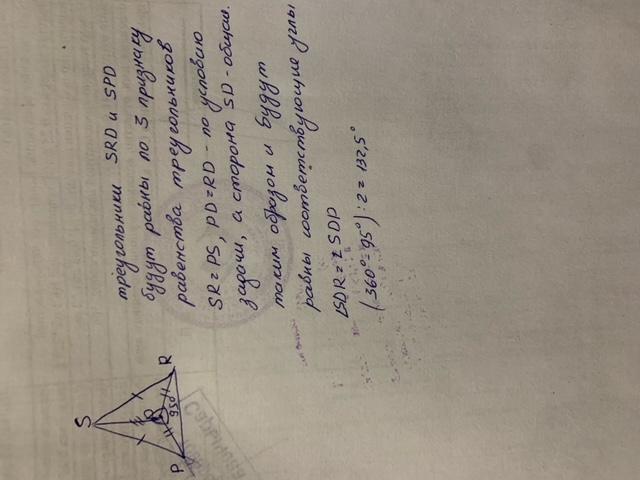 треугольники SRD и SPD
будут равны по 3 признаку
равенства треугольников
SR = PS, PD = RD - по условию
задачи, а сторона SD - общая.
таким образом и будут
равны соответствующие углы
∠SDR = ∠SDP
(360° - 95°) : 2 = 132,5°
S
D
95°
P
R